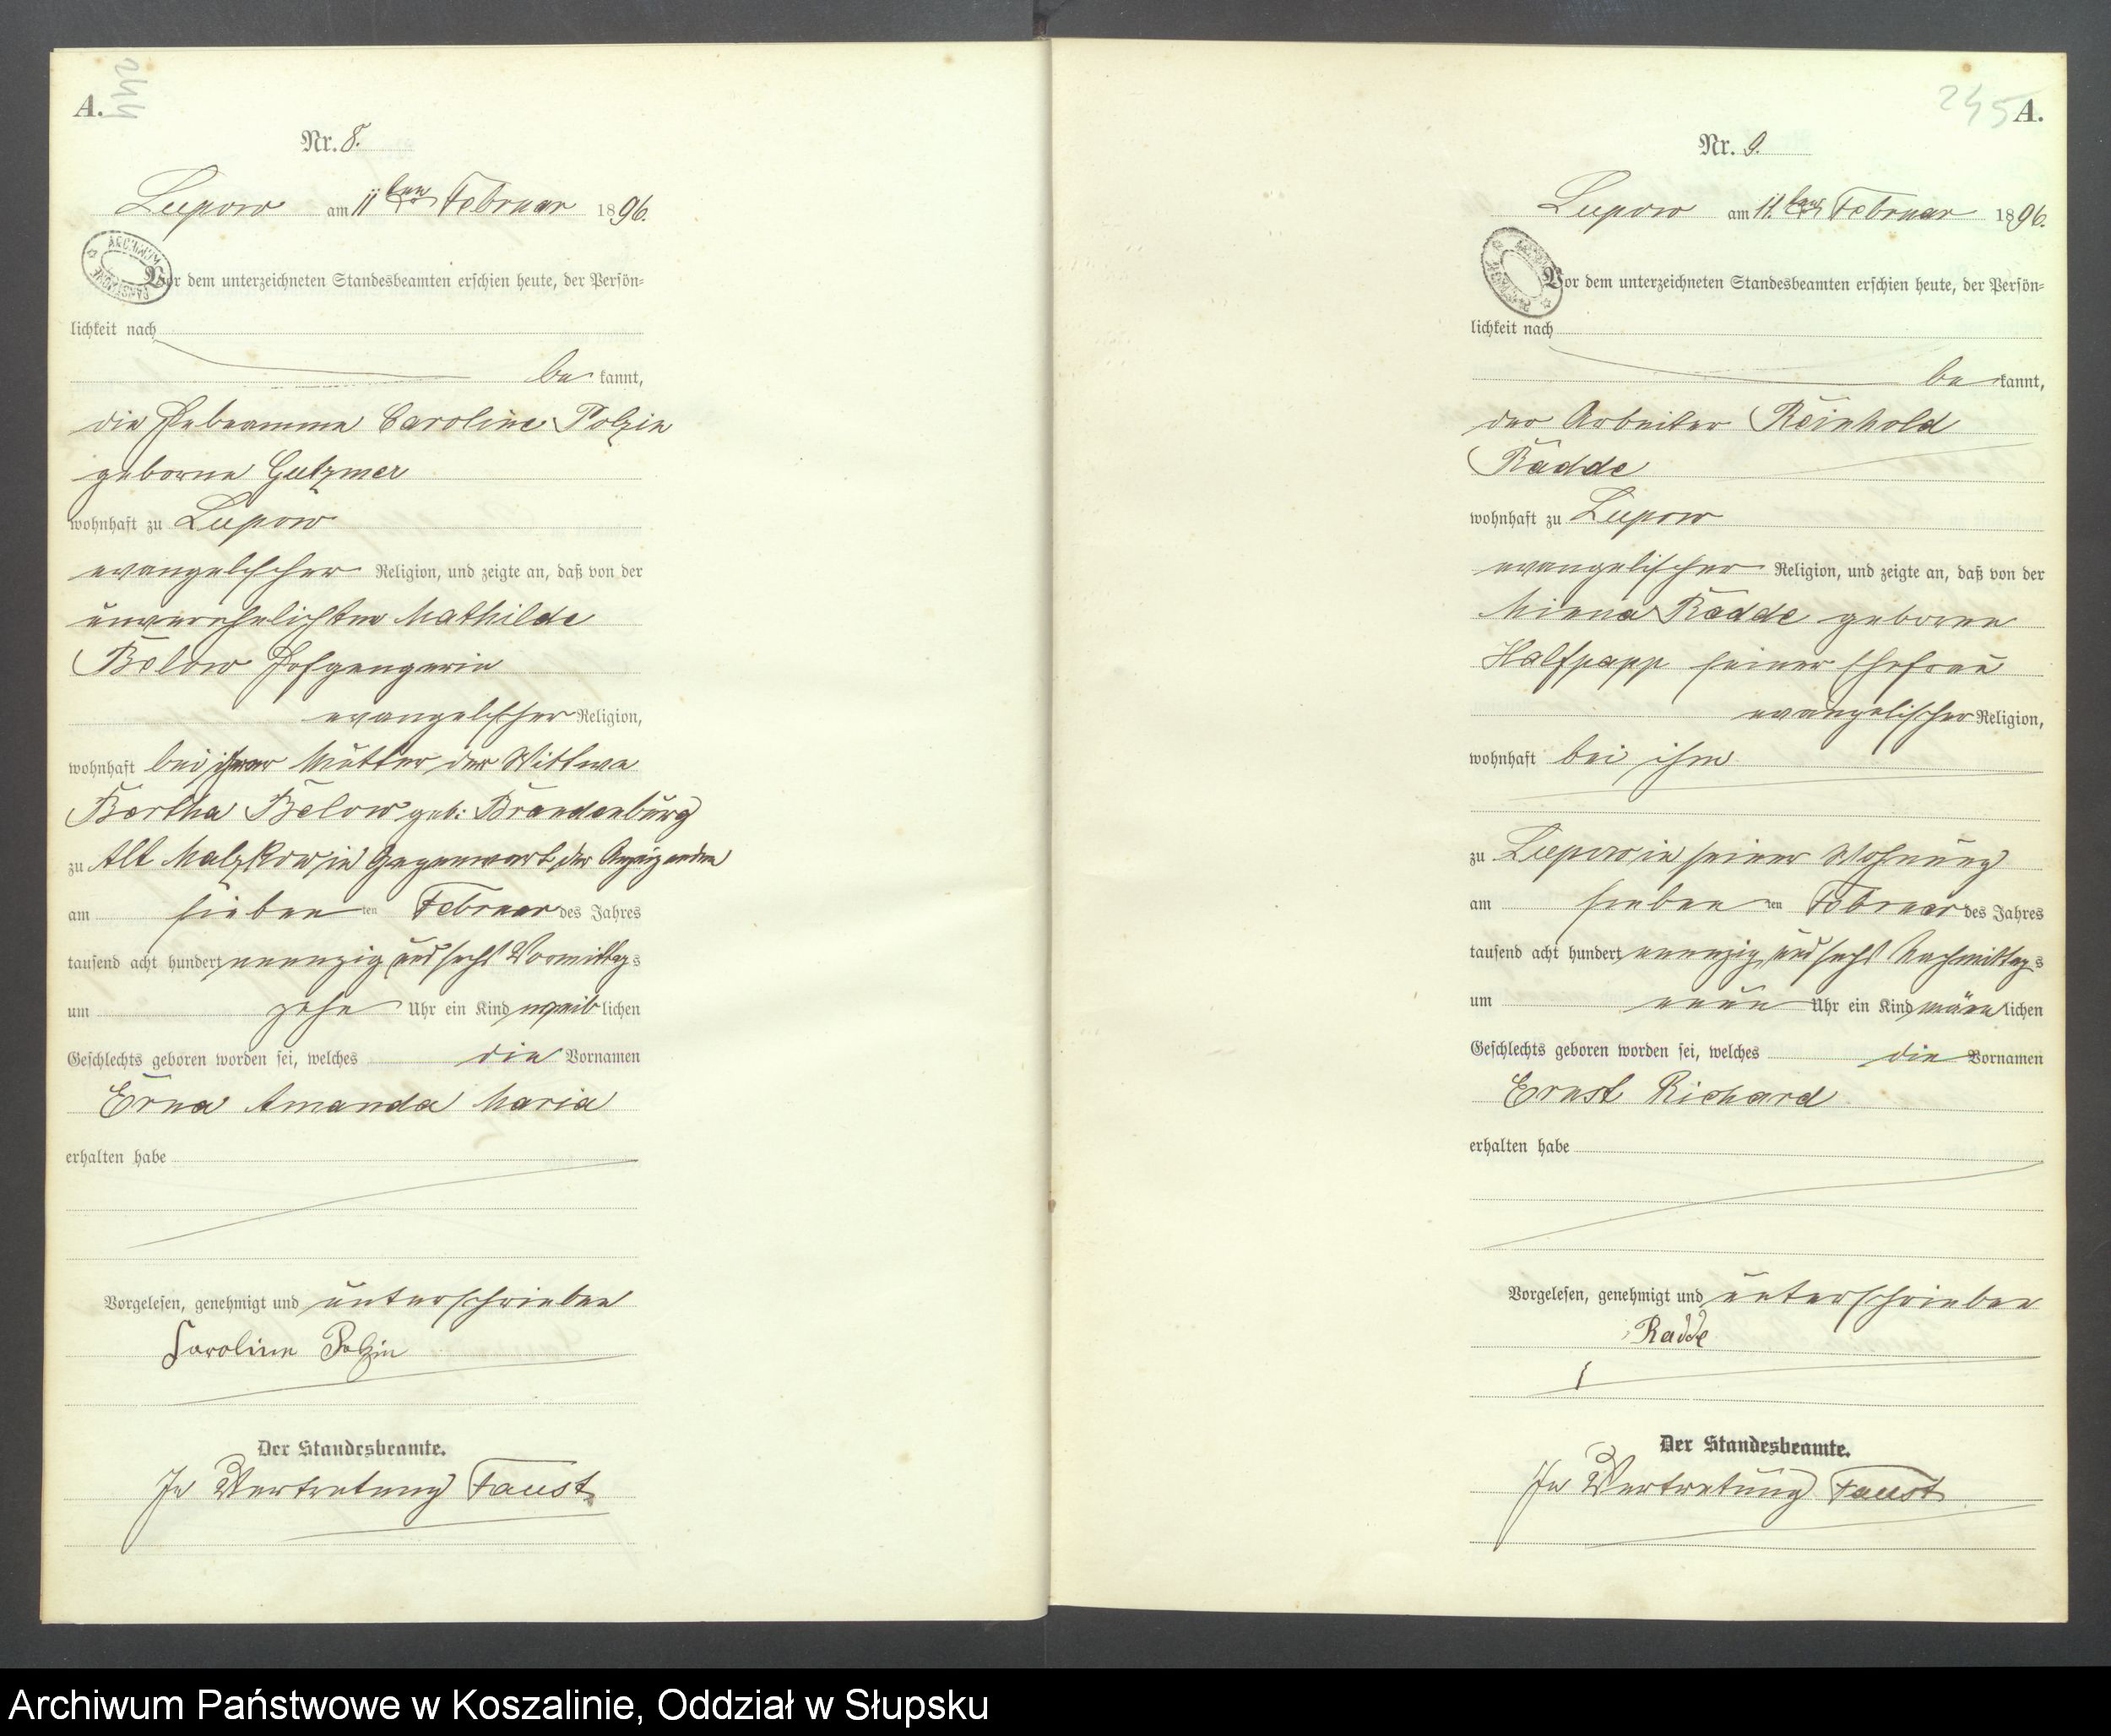 A.
244
Nr. 8.
Lupow am 11ten Februar 1896.
Vor dem unterzeichneten Standesbeamten erschien heute, der Persön-
lichkeit nach
be kannt,
die Hebeamme Caroline Polzin
geborne Gutzmer
wohnhaft zu Lupow
evangelischer Religion, und zeigte an, daß von der
unverehelichten Mathilde
Below Hofgengerin
evangelischer Religion,
wohnhaft bei ihrer Mutter der Wittwe
Bertha Below geb: Brandenburg
zu Alt Malzkow in Gegenwart der Anzeigenden
am sieben ten Februar des Jahres
tausend acht hundert neunzig und sechs Vormittags
um zehn Uhr ein Kind weiblichen
Geschlechts geboren worden sei, welches die Vornamen
Erna Amanda Maria
erhalten habe
Vorgelesen, genehmigt und unterschrieben
Caroline Polzin
Der Standesbeamte.
In Vertretung Faust
245 A.
Nr. 9.
Lupow am 11. ten Februar 1896.
Vor dem unterzeichneten Standesbeamten erschien heute, der Persön-
lichkeit nach
be kannt,
der Arbeiter Reinhold
Radde
wohnhaft zu Lupow
evangelischer Religion, und zeigte an, daß von der
Minna Radde geborne
Halfpapp seiner Ehefrau
evangelischer Religion,
wohnhaft bei ihm
zu Lupow in seiner Wohnung
am sieben ten Februar des Jahres
tausend acht hundert neunzig und sechs Nachmittags
um neun Uhr ein Kind männlichen
Geschlechts geboren worden sei, welches die Vornamen
Ernst Richard
erhalten habe
Vorgelesen, genehmigt und unterschrieben
Radde
Der Standesbeamte.
In Vertretung Faust
Archiwum Państwowe w Koszalinie, Oddział w Słupsku